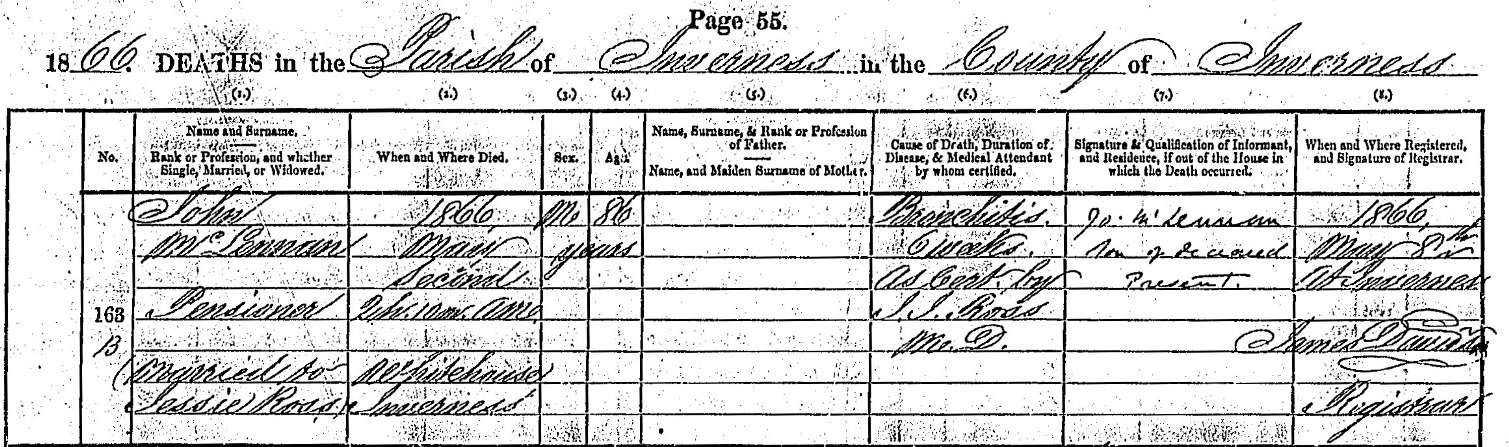 Page 55.
1866. DEATHS in the Parish of Inverness in the County of Inverness
(1.) (2.) (3.) (4.) (5.) (6.) (7.) (8.)
No.
Name and Surname.
Rank or Profession, and whether
Single, Married, or Widowed.
When and Where Died.
Sex.
Age.
Name, Surname, & Rank or Profession
of Father.
Name, and Maiden Surname of Mother.
Cause of Death, Duration of
Disease, & Medical Attendant
by whom certified.
Signature & Qualification of Informant,
and Residence, if out of the House in
which the Death occurred.
When and Where Registered,
and Signature of Registrar.
163
B
John
McLennan
Pensioner
(Married to
Jessie Ross)
1866,
May
Second
2h. 10m. A.M.
Whitehouse
Inverness
M
86
years
Bronchitis.
6 weeks.
As Cert. by
J. J. Ross
M. D.
Jo. McLennan
Son of deceased
Present.
1866,
May 8th
At Inverness
James Davidson
Registrar